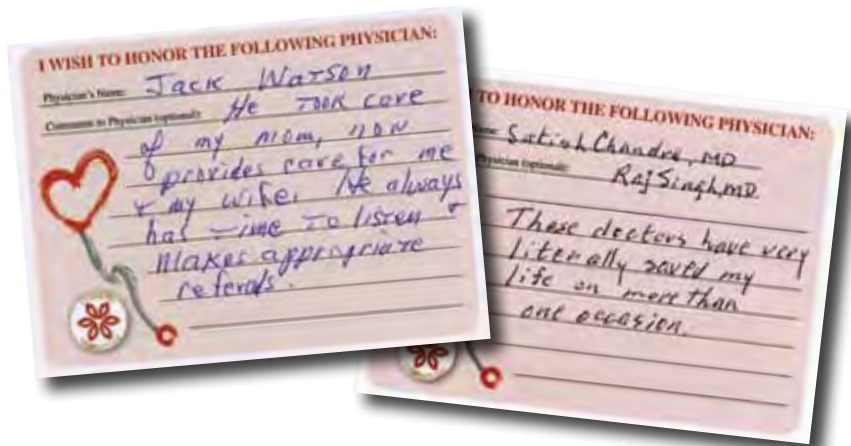 I WISH TO HONOR THE FOLLOWING PHYSICIAN:
Physician's Name: Jack Watson
Comment to Physician (optional): He took care
of my mom, now
provides care for me
& my wife. He always
has time to listen &
makes appropriate
referals.
TO HONOR THE FOLLOWING PHYSICIAN:
Name: Satish Chandra, MD
Physician (optional): Raj Singh, MD
These doctors have very
literally saved my
life on more than
one occasion.